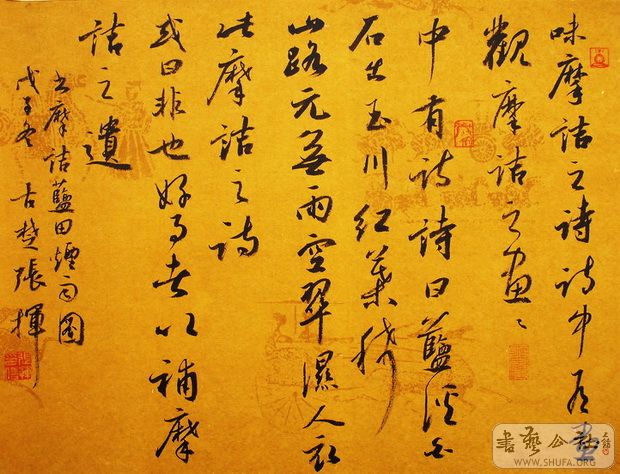 味摩詰之詩詩中有畫
觀摩詰之畫〻
中有詩詩曰藍溪白
石出玉川紅葉稀
山路元無雨空翠濕人衣
此摩詰之詩
或曰非也好事者以補摩
詰之遺
書摩詰藍田煙雨圖
戊子冬 古楚張揮
WWW.SHUFA.ORG